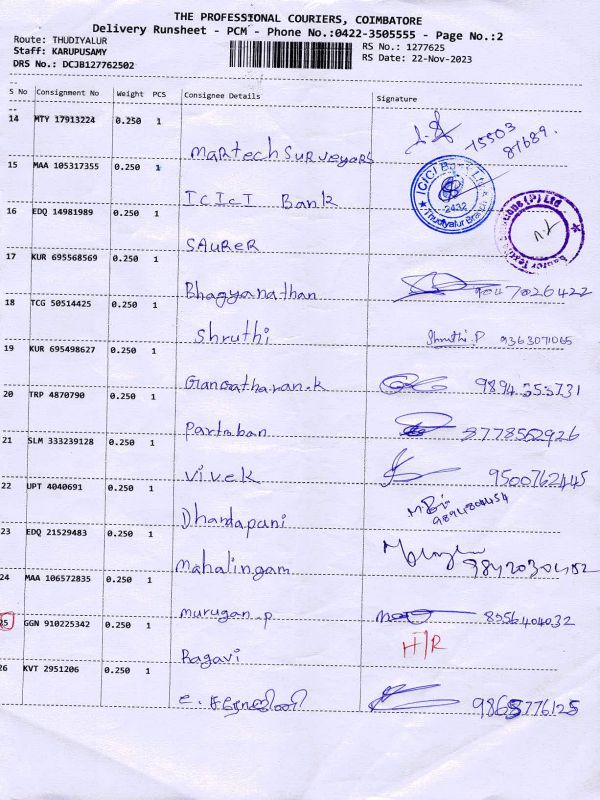 THE PROFESSIONAL COURIERS, COIMBATORE
Delivery Runsheet - PCM - Phone No.:0422-3505555 - Page No.:2
Route: THUDIYALUR
RS No.: 1277625
Staff: KARUPUSAMY
RS Date: 22-Nov-2023
DRS No.: DCJB127762502
S No Consignment No Weight PCS Consignee Details Signature
14 MTY 17913224 0.250 1 Martech surveyors 75503 87689.
15 MAA 105317355 0.250 1 ICICI Bank
ICICI Bank Ltd. 2432 Thudiyalur Branch
16 EDQ 14981989 0.250 1 SAURER
17 KUR 695568569 0.250 1 Bhagyanathan 9047026422
18 TCG 50514425 0.250 1 Shruthi Shruthi.P 9363071065
19 KUR 695498627 0.250 1 Gangatharan.k 9894353731
20 TRP 4870790 0.250 1 Partiban 8778562926
21 SLM 333239128 0.250 1 Vivek 9500762445
22 UPT 4040691 0.250 1 Dhandapani 9894804454
23 EDQ 21529483 0.250 1 Mahalingam 9842030452
24 MAA 106572835 0.250 1 Murugan.p
25 GGN 910225342 0.250 1 Ragavi H/R
26 KVT 2951206 0.250 1 9865776125